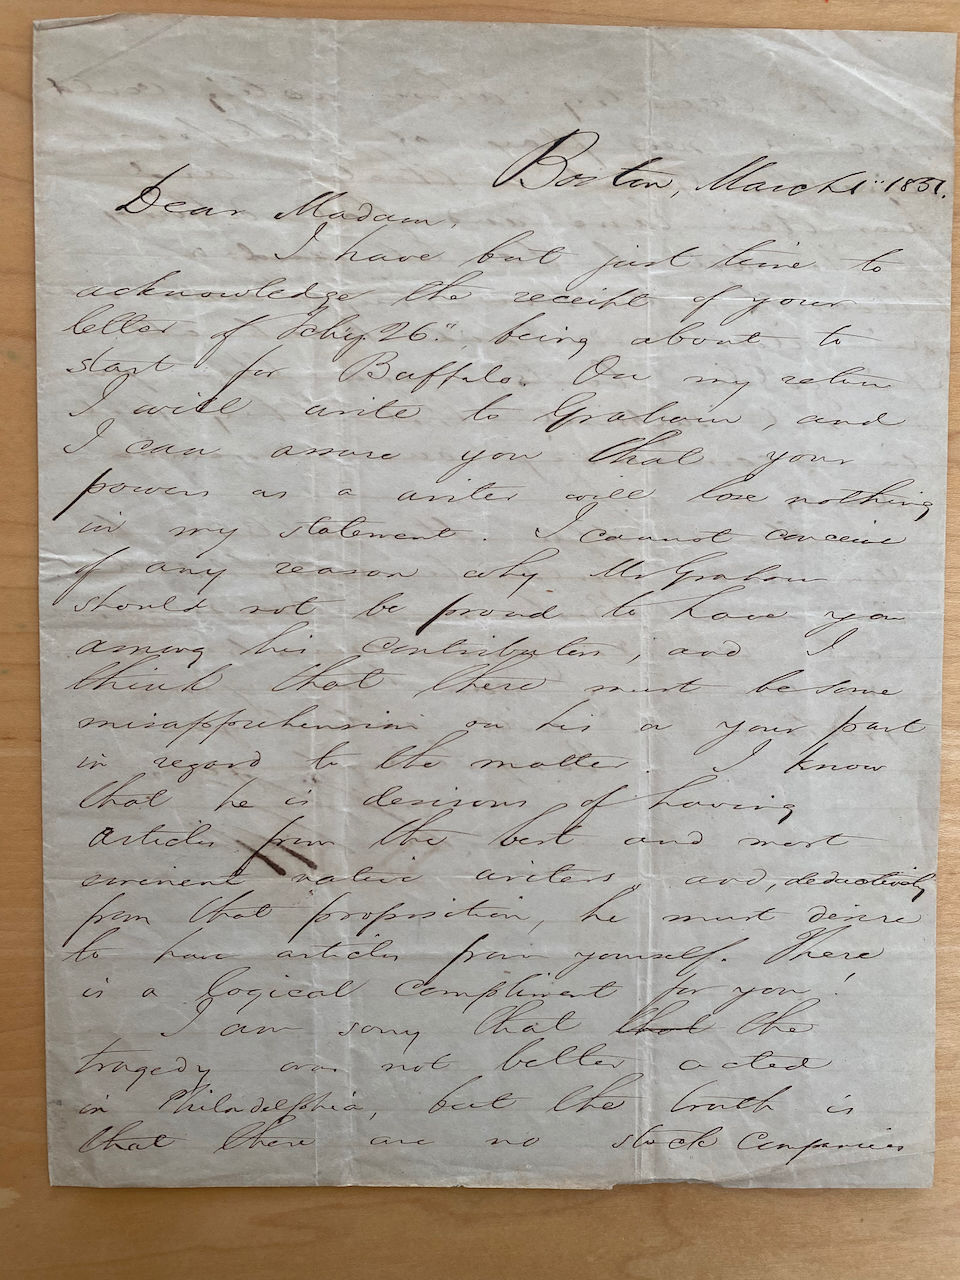 Boston, March 1" 1851.
Dear Madam,
I have but just time to
acknowledge the receipt of your
letter of Feby. 26", being about to
start for Buffalo. On my return
I will write to Graham, and
I can assure you that your
powers as a writer will lose nothing
in my statement. I cannot conceive
of any reason why Mr Graham
should not be proud to have you
among his contributors; and I
think that there must be some
misapprehension on his or your part
in regard to the matter. I know
that he is desirous of having
articles from the best and most
eminent "native writers" and, deductively
from that proposition, he must desire
to have articles from yourself. There
is a logical compliment for you!
I am sorry that that the
tragedy was not better acted
in Philadelphia, but the truth is
that there are no stock companies